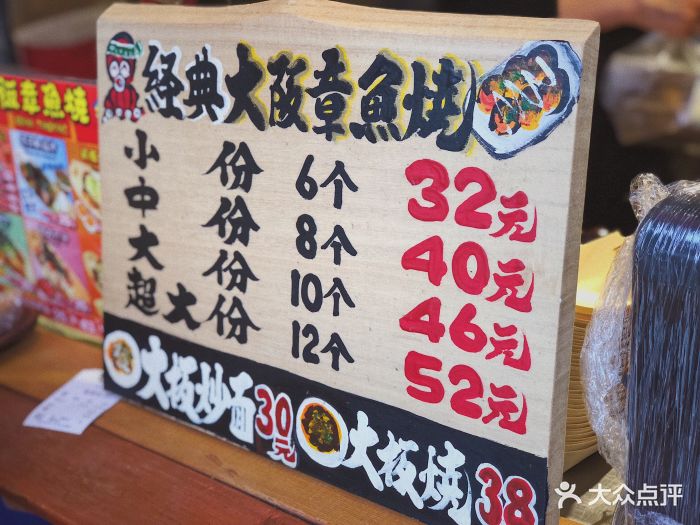 經典大阪章魚燒
小份 6个 32元
中份 8个 40元
大份 10个 46元
超大份 12个 52元
大板炒面 30元 大板燒 38
阪章魚燒
大众点评